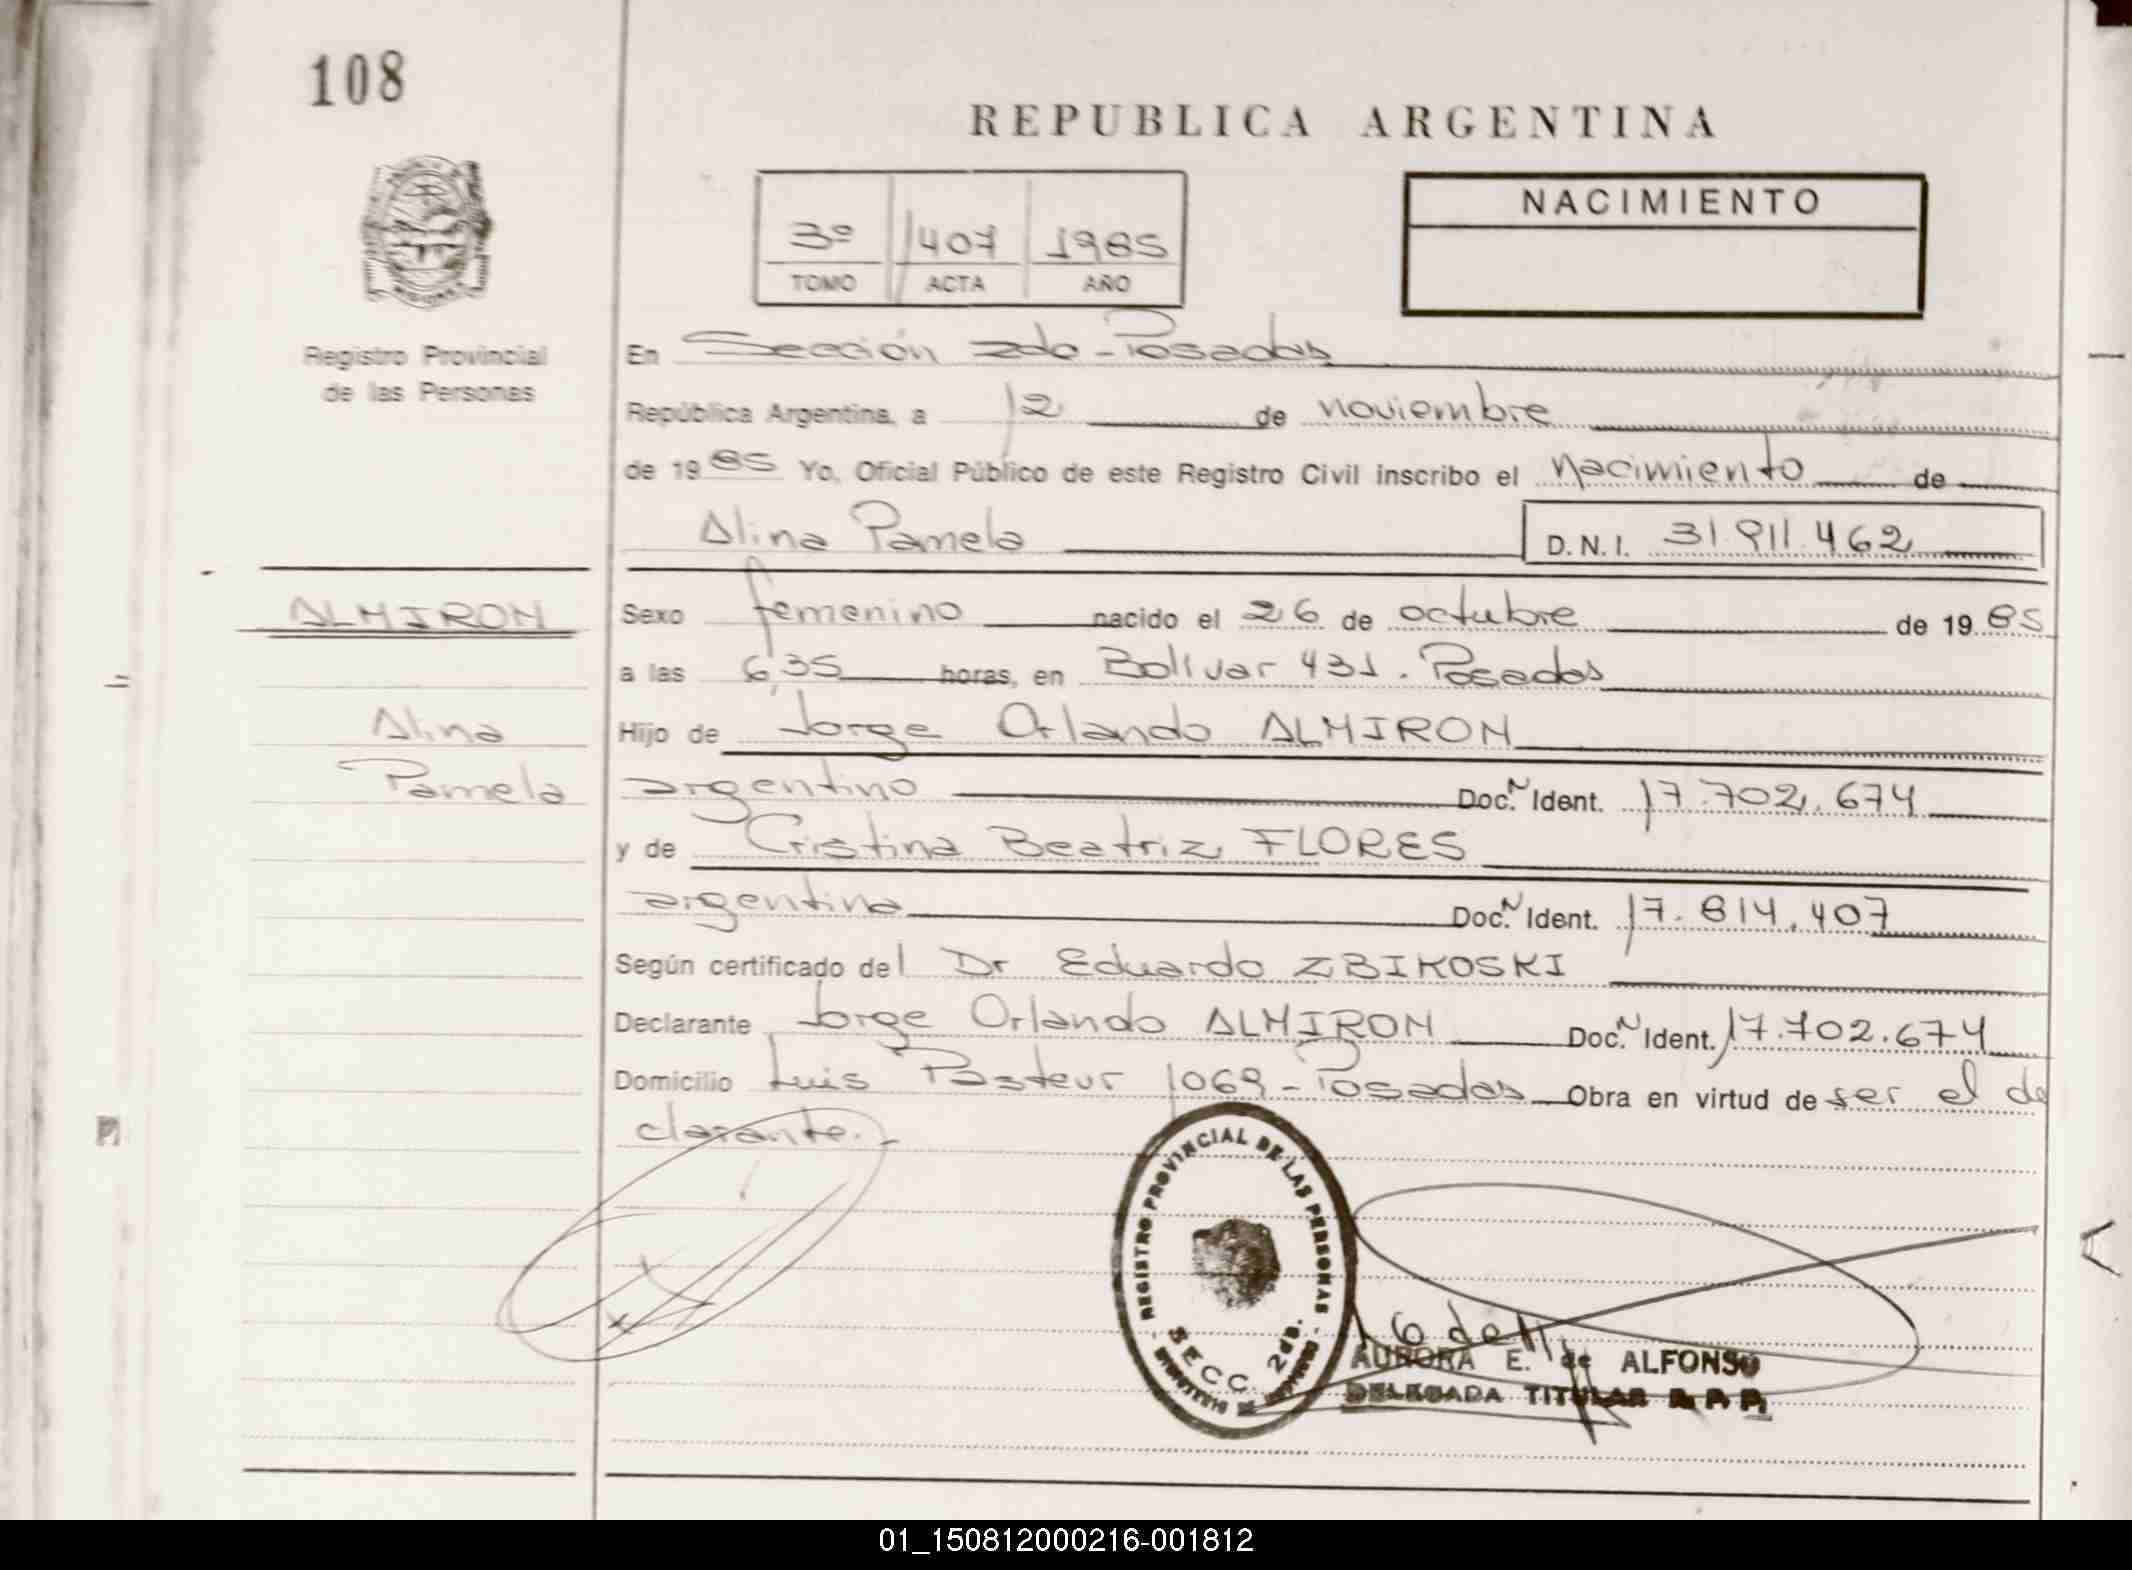 108
REPUBLICA ARGENTINA
NACIMIENTO
3º 1407 1985
TOMO ACTA AÑO
Registro Provincial
de las Personas
En Sección 2da - Posadas
República Argentina, a 12 de noviembre
de 1985 Yo, Oficial Público de este Registro Civil inscribo el nacimiento de
Alina Pamela D.N.I. 31.911.462
ALMIRON
Sexo femenino nacido el 26 de octubre de 1985
a las 6,35 horas, en Bolivar 431. Posadas
Alina
Hijo de Jorge Orlando ALMIRON
Pamela
argentino Doc. N Ident. 17.702.674
y de Cristina Beatriz FLORES
argentina Doc. N Ident. 17.814.407
Según certificado del Dr Eduardo ZBIKOSKI
Declarante Jorge Orlando ALMIRON Doc. N Ident. 17.702.674
Domicilio Luis Pasteur 1069 - Posadas Obra en virtud de ser el de
clarante.-
REGISTRO PROVINCIAL DE LAS PERSONAS
SECC 2da.
AURORA E. de ALFONSO
DELEGADA TITULAR R.P.P.
01_150812000216-001812